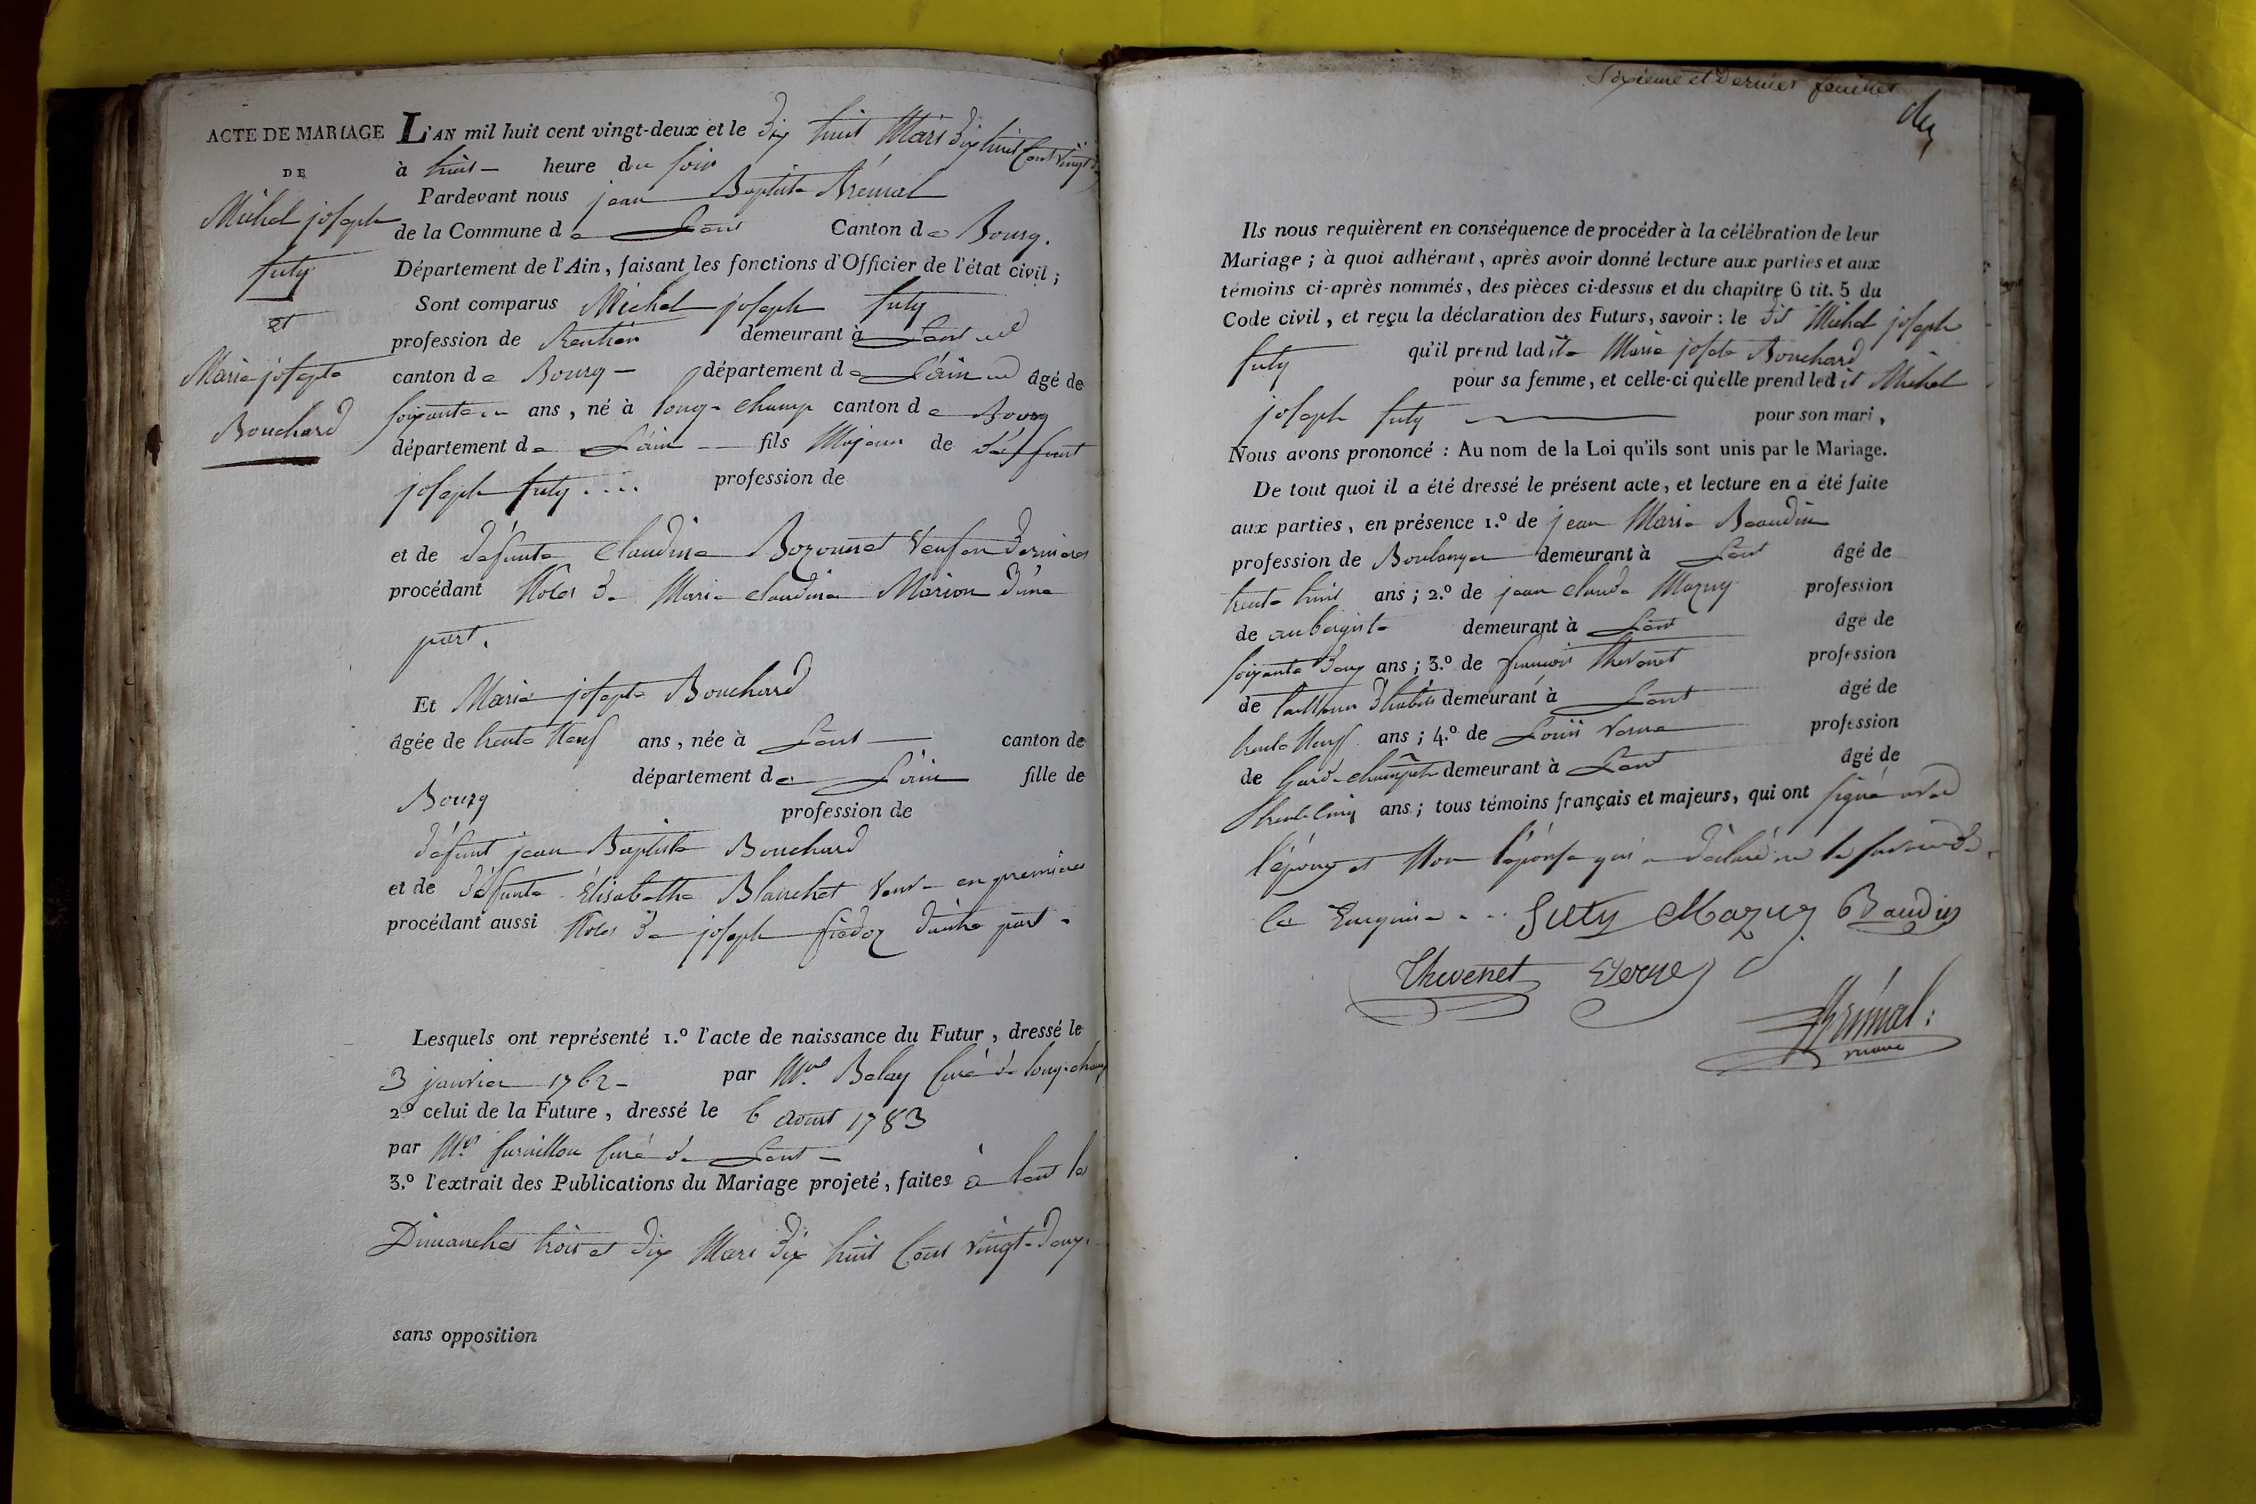 ACTE DE MARIAGE
DE
Michel joseph
futy
et
Marie josephte
Bouchard
L'AN mil huit cent vingt-deux et le dix huit Mars dix huit Cent vingt
à huit heure du soir
Pardevant nous jean Baptiste Brémal
de la Commune de Lent Canton de Bourg.
Département de l'Ain, faisant les fonctions d'Officier de l'état civil;
Sont comparus Michel joseph futy
profession de Rentier demeurant à Lent
canton de Bourg département de L'ain âgé de
soixante ans, né à Long-champ canton de Bourg
département de L'ain fils Majeur de défunt
joseph futy .... profession de
et de défunte Claudine Bozonnet Veuf en dernieres
procédant Noces de Marie Claudine Marion d'une
part.
Et Marie josephte Bouchard
âgée de trente Neuf ans, née à Lent canton de
Bourg département de L'ain fille de
profession de
défunt jean Baptiste Bouchard
et de défunte Élisabethe Blanchet Veuve en premieres
procédant aussi Noces de joseph d'autre part
Lesquels ont représenté 1.º l'acte de naissance du Futur, dressé le
3 janvier 1762 par Mre Belay Curé de Long-champ
2º celui de la Future, dressé le 6 Aoust 1783
par Mre Curé de Lent
3.º l'extrait des Publications du Mariage projeté, faites à Lent les
Dimanches trois et dix Mars dix huit Cent vingt-deux
sans opposition
Sixième et Dernier feuillet
Ils nous requièrent en conséquence de procéder à la célébration de leur
Mariage; à quoi adhérant, après avoir donné lecture aux parties et aux
témoins ci-après nommés, des pièces ci-dessus et du chapitre 6 tit. 5 du
Code civil, et reçu la déclaration des Futurs, savoir: le dit Michel joseph
futy qu'il prend ladite Marie josephte Bouchard
pour sa femme, et celle-ci qu'elle prend ledit Michel
joseph futy pour son mari,
Nous avons prononcé: Au nom de la Loi qu'ils sont unis par le Mariage.
De tout quoi il a été dressé le présent acte, et lecture en a été faite
aux parties, en présence 1.º de jean Marie Beaudin
profession de Boulanger demeurant à Lent âgé de
trente huit ans; 2.º de jean Claude Mazuy profession
de aubergiste demeurant à Lent âgé de
soixante Deux ans; 3.º de françois Thevenet profession
de tailleur D'habits demeurant à Lent âgé de
trente Neuf ans; 4.º de Louis Verne profession
de Garde-Champêtre demeurant à Lent âgé de
trente cinq ans; tous témoins français et majeurs, qui ont signé avec
l'époux et Non l'épouse qui a déclaré ne le savoir de
ce Enquise ... Futy Mazuy Baudin
Thevenet Verne
Brémal
maire